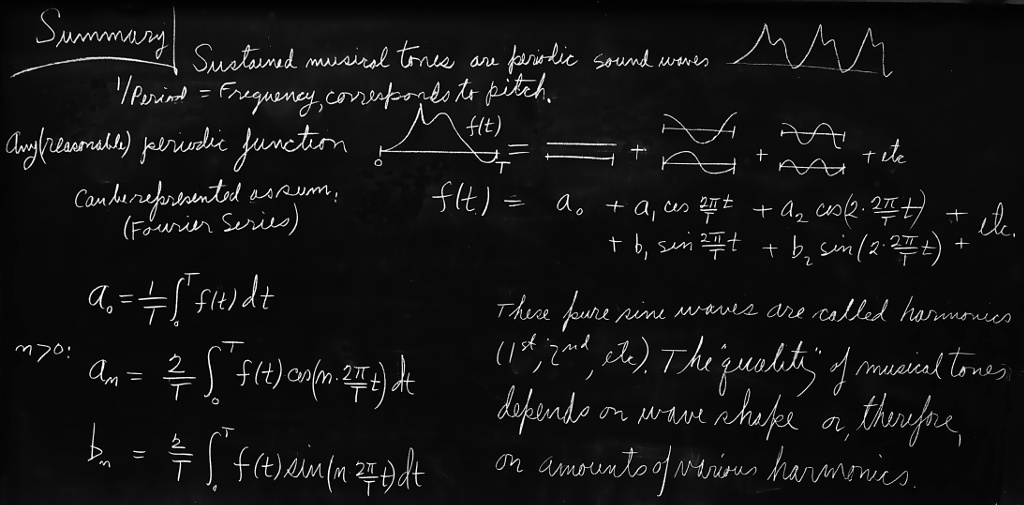 Summary
Sustained musical tones are periodic sound waves
1/Period = Frequency, corresponds to pitch.
Any (reasonable) periodic function
f(t)
0 T = + + + etc
Can be represented as sum.
(Fourier Series)
f(t) = a₀ + a₁ cos 2π/T t + a₂ cos(2·2π/T t) + etc.
+ b₁ sin 2π/T t + b₂ sin(2·2π/T t) +
a₀ = 1/T ∫₀ᵀ f(t) dt
n>0: aₙ = 2/T ∫₀ᵀ f(t) cos(n·2π/T t) dt
bₙ = 2/T ∫₀ᵀ f(t) sin(n 2π/T t) dt
These pure sine waves are called harmonics
(1st, 2nd, etc). The "quality" of musical tones
depends on wave shape or, therefore,
on amounts of various harmonics.